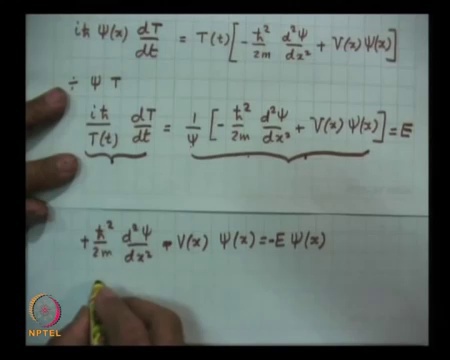 iħ Ψ(x) dT/dt = T(t)[-ħ²/2m d²Ψ/dx² + V(x)Ψ(x)]
÷ Ψ T
iħ/T(t) dT/dt = 1/Ψ [-ħ²/2m d²Ψ/dx² + V(x)Ψ(x)] = E
+ħ²/2m d²Ψ/dx² - V(x) Ψ(x) = -E Ψ(x)
NPTEL